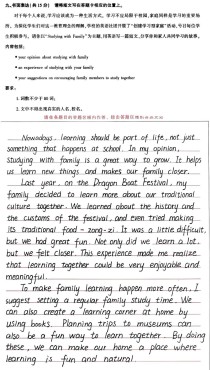 九、书面表达(共 15 分) 请将短文写在答题卡相应的位置上。
对于每个人来说,学习应该成为一种生活方式。学习不应局限于校园,家庭同样是学习的重要场
"Studying with Family"
内容包括:
• your opinion about studying with family
• an experience of studying with your family
• your suggestions on encouraging family members to study together
要求:
1. 词数不少于 80 词;
2. 文中不得出现真实的人名、校名。
Nowadays, learning should be part of life, not just
something that happens at school. In my opinion,
studying with family is a great way to grow. It helps
us learn new things and makes our family closer.
Last year, on the Dragon Boat Festival, my
family decided to learn more about our traditional
culture together. We learned about the history and
the customs of the festival, and even tried making
its traditional food - zong-zi. It was a little difficult,
but we had great fun. Not only did we learn a lot,
but we felt closer. This experience made me realize
that learning together could be very enjoyable and
meaningful.
To make family learning happen more often, I
suggest setting a regular family study time. We
can also create a learning corner at home by
using books. Planning trips to museums can
also be a fun way to learn together. By doing
these, we can make our home a place where
learning is fun and natural.